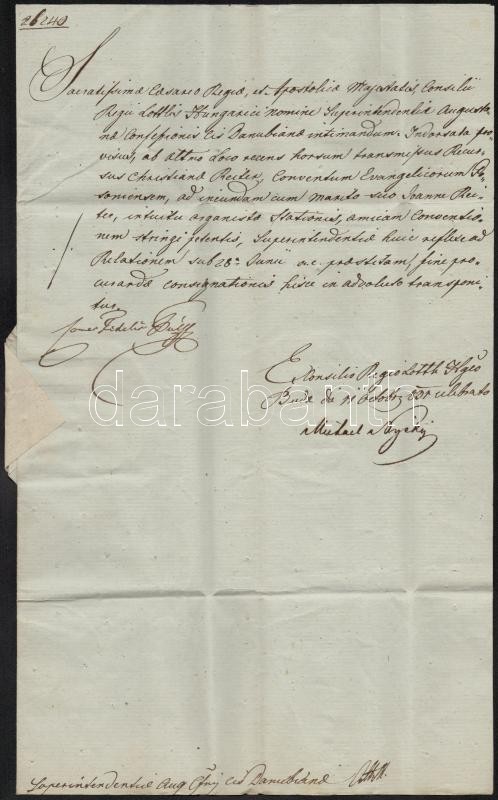 26240
Sacratissimæ Cæsareo Regiæ, et Apostolicæ Majestatis, Consilii
Regii Lottlis Hungarici nomine Superintendentiæ Augusta
næ Confessionis Cis Danubianæ intimandum. Indorsata pro
visus, ab altmo loco recens horsum transmissus Recur
sus Christianæ Reiter, Conventum Evangelicorum Po
soniensem, ad ineundam cum marito suo Joanne Rei
ter, intuitu organistæ Stationis, amicam Conventio
nem stringi petentis, Superintendentiæ huic reflexe ad
Relationem sub 28a Junii a.c. præstitam, fine pro
curandæ consignationis hisce in advoluto transponi
tur.
Comes Fidelis
E Consilio Regio Lottli Hgco
Budæ die Octobr celebrato
Michael
darabanth
Superintendentiæ Aug Cis Danubianæ